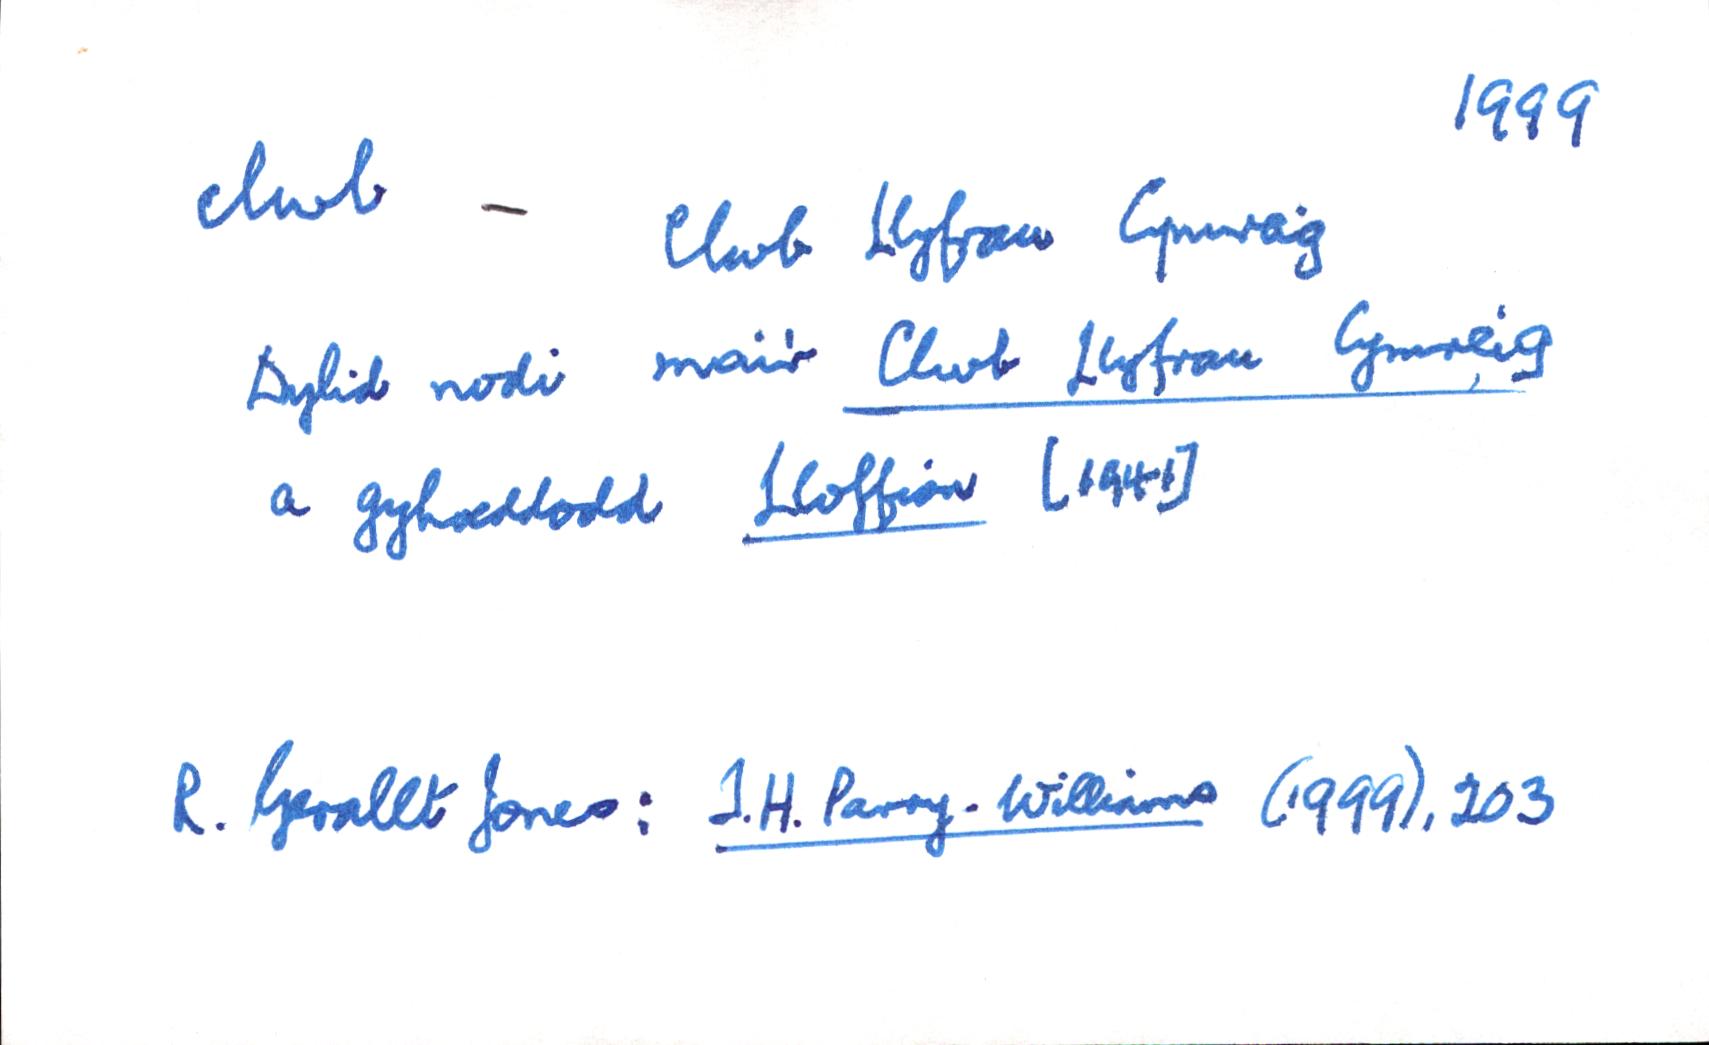 1999
clwb – Clwb Llyfrau Cymraeg
Dylid nodi mai'r Clwb Llyfrau Cymreig
a gyhoeddodd Lloffion [1941]
R. Gerallt Jones: T.H. Parry-Williams (1999), 203